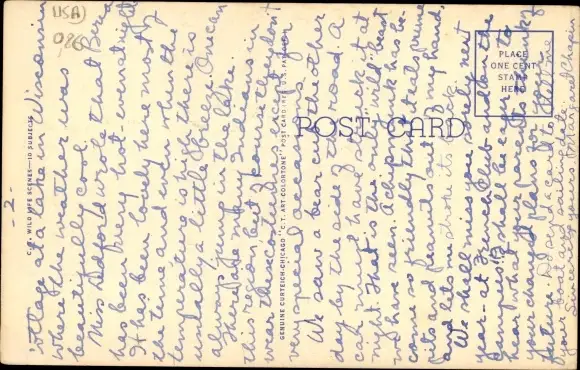 2-
village at a lake in Wisconsin
where the weather was
beautifully cool.
Miss Bedford wrote that Berea
has been very hot - even at night
It has been lovely here most of
the time and even when the
temperature is high there is
usually a little breeze. One can
always jump in the lake.
There are many Indians in
this region, but of course they don't
wear their costumes except for
very special occasions.
We saw a bear cub the other
day by the side of the road. A
car must have struck it at
night. That is the only "wild" beast
we have seen. A chipmunk has be-
come so friendly that it eats prune
pits and peanuts out of my hand,
and lets me stroke its back.
We shall miss you sorely next
year - at French Club and on the
campus. I shall be eager to
hear what your parents think of
your changed plans for the
future. Do send a card
your boat
Sincerely yours, Margaret Chapin
USA
086
C. WILD LIFE SCENES—10 SUBJECTS
GENUINE CURTEICH-CHICAGO "C. T. ART-COLORTONE" POST CARD (REG. U.S. PAT. OFF.)
POST CARD
PLACE
ONE CENT
STAMP
HERE